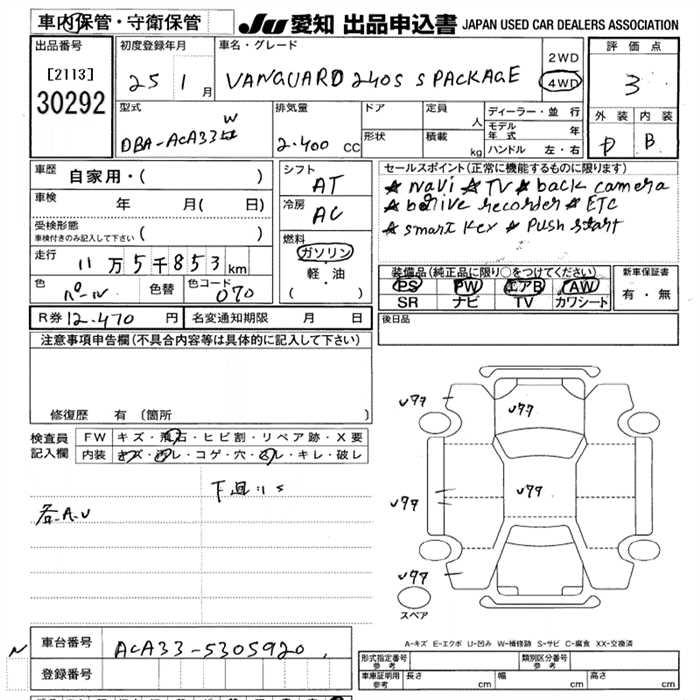 車内保管・守衛保管
JU 愛知 出品申込書 JAPAN USED CAR DEALERS ASSOCIATION
出品番号
[2113]
30292
初度登録年月
25 1月
車名・グレード
VANGUARD 240S S PACKAGE
2WD
4WD
評価点
3
外装 内装
D B
型式
DBA-ACA33W
排気量
2.400 cc
ドア
形状
定員
人
積載
kg
ディーラー・並行
モデル年式 年
ハンドル 左・右
車歴
自家用・( )
車検 年 月( 日)
受検形態
車検付きのみ記入して下さい ( )
走行 11万5千853km
色 パール 色替 色コード 070
シフト
AT
冷房
AC
燃料
ガソリン
軽・油
( )
セールスポイント(正常に機能するものに限ります)
☆ navi ☆ TV ☆ back camera
☆ drive recorder ☆ ETC
☆ smart key ☆ Push start
装備品(純正品に限り○をつけてください)
PS PW エアB AW
SR ナビ TV カワシート
新車保証書
有・無
R券 12.470 円 名変通知期限 月 日
後日品
注意事項申告欄(不具合内容等は具体的に記入して下さい)
修復歴 有(箇所 )
検査員記入欄
FW キズ・飛石・ヒビ割・リペア跡・X要
内装 キズ・汚レ・コゲ・穴・スレ・キレ・破レ
下回りS
各.A.U
U99
U99
U99
U99
U99
スペア
A-キズ E-エクボ U-凹み W-補修跡 S-サビ C-腐食 XX-交換済
N
車台番号 ACA33-5305920
登録番号
形式指定番号 参考
類別区分番号 参考
車庫証明用 参考 長さ cm 幅 cm 高さ cm